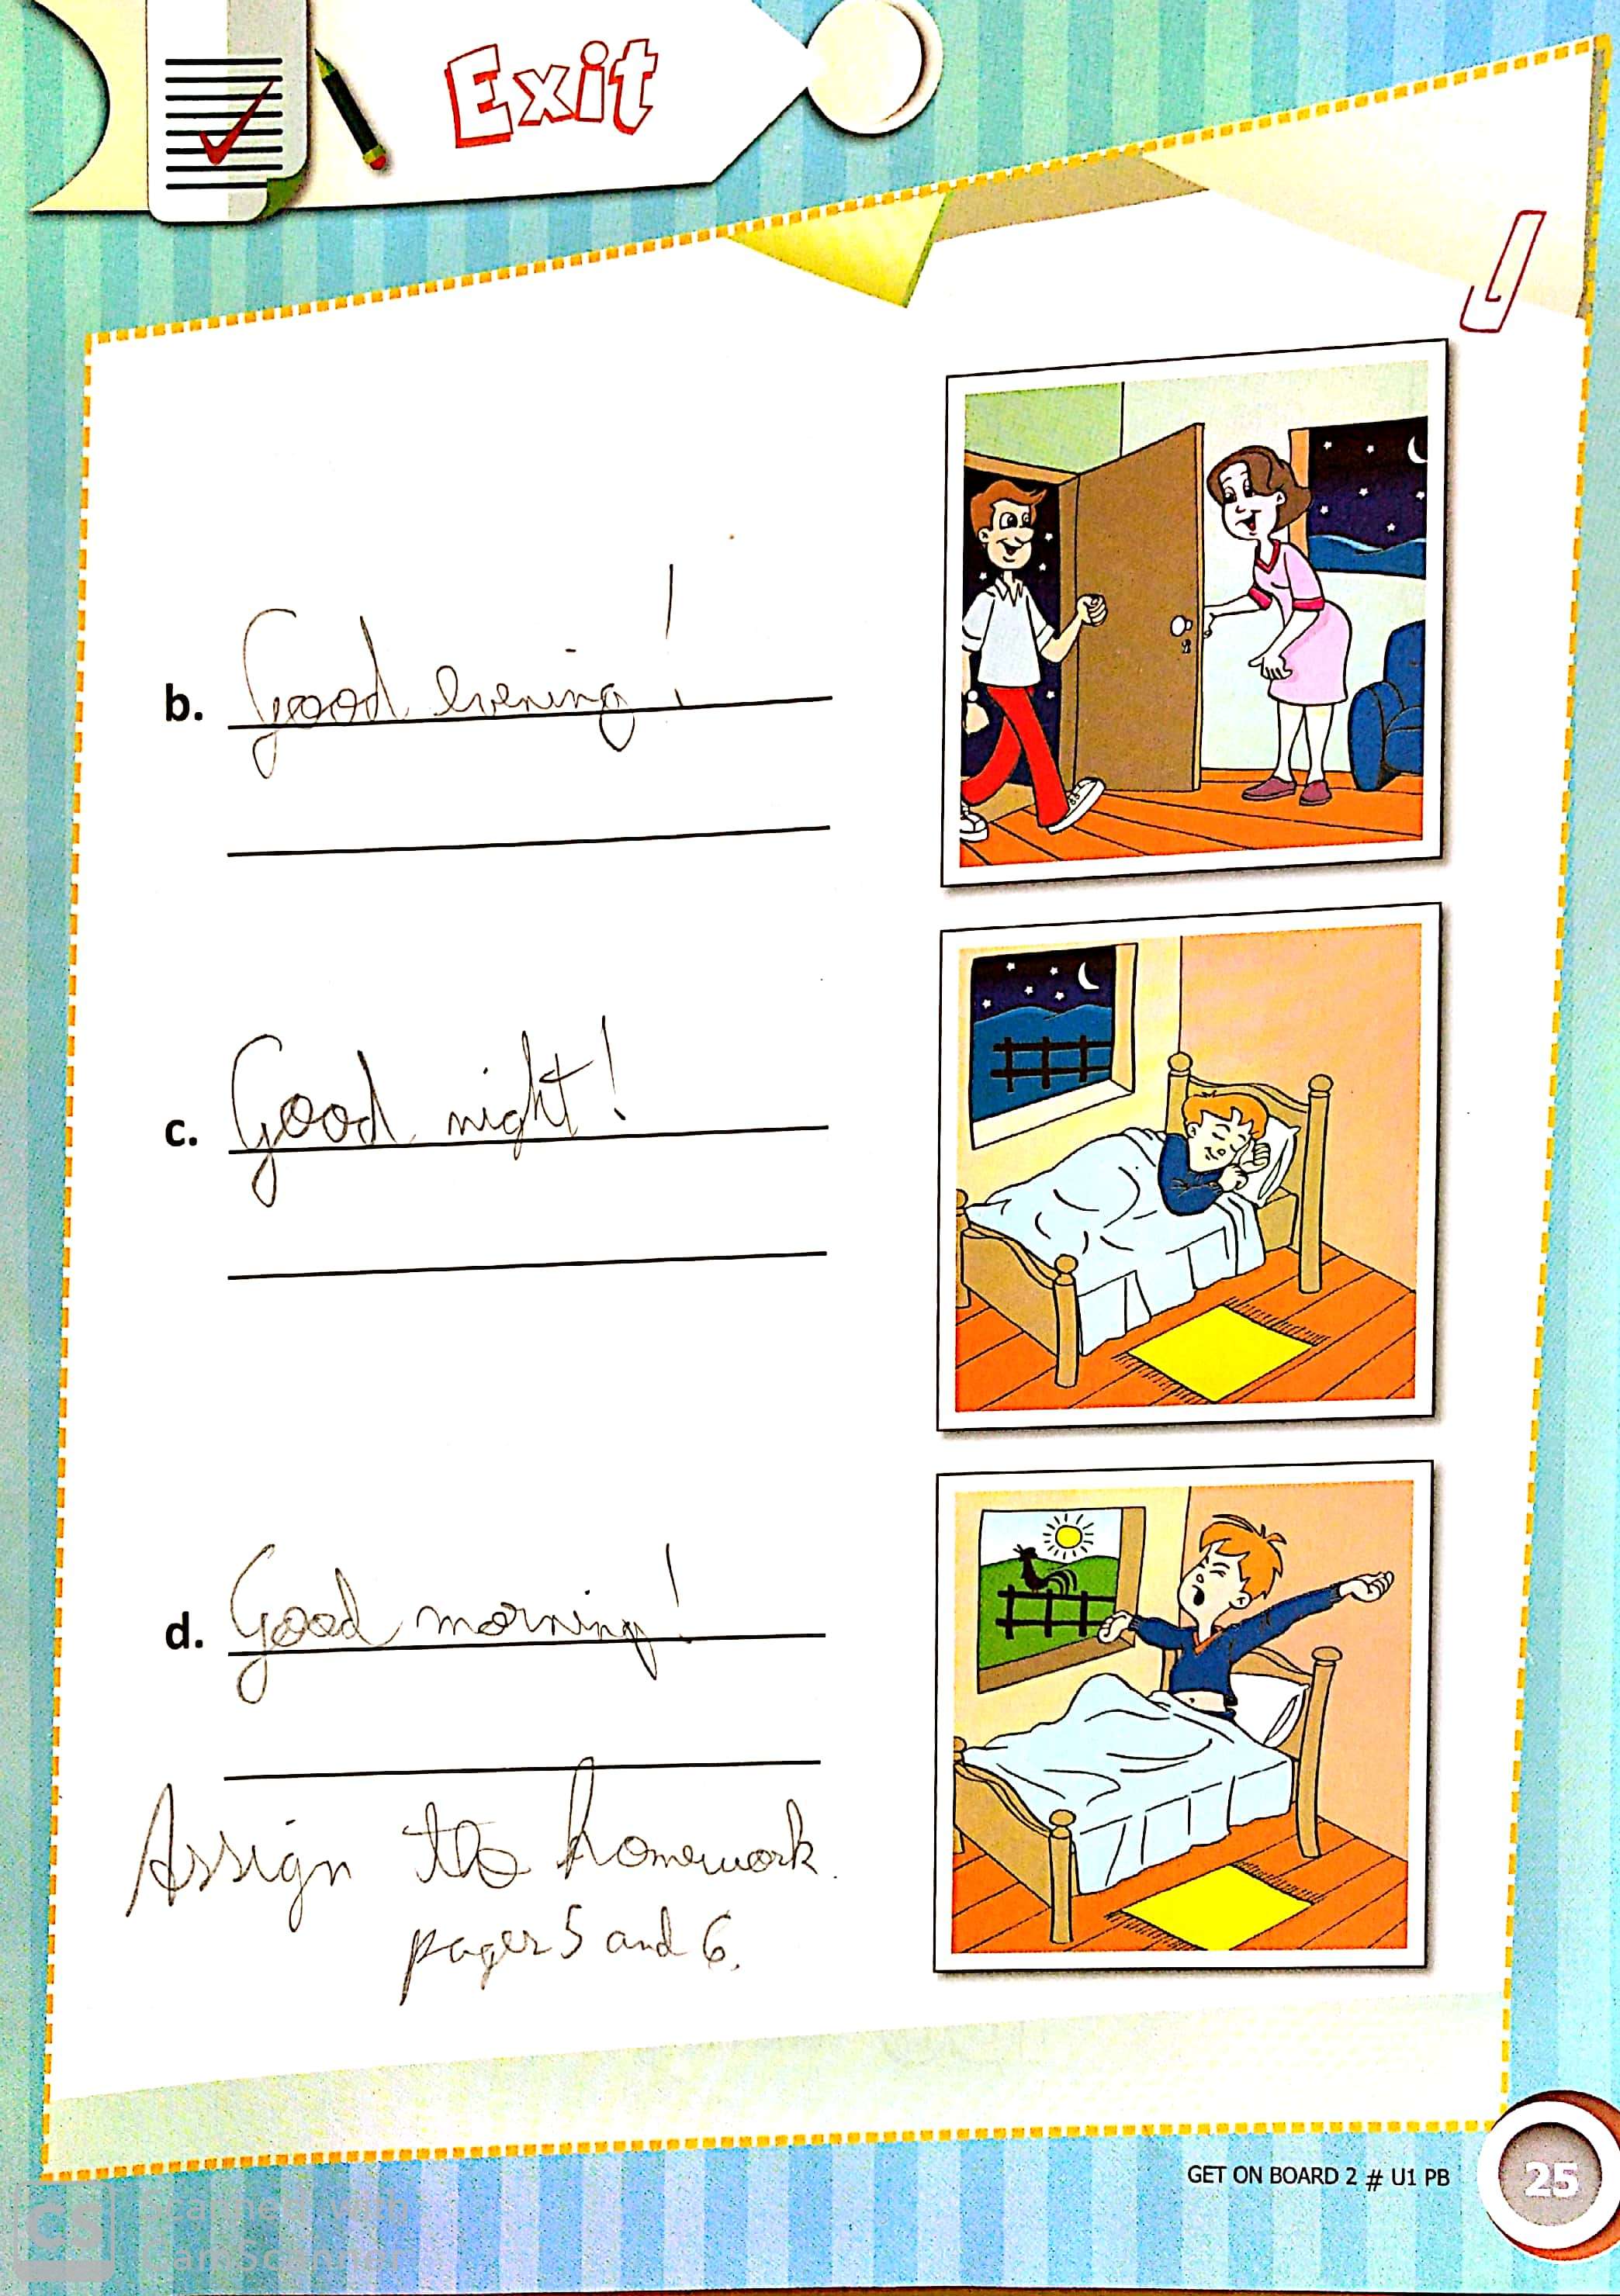 Exit
b. Good evening!
c. Good night!
d. Good morning!
Assign the homework.
pages 5 and 6.
GET ON BOARD 2 # U1 PB
25
CS Scanned with
CamScanner